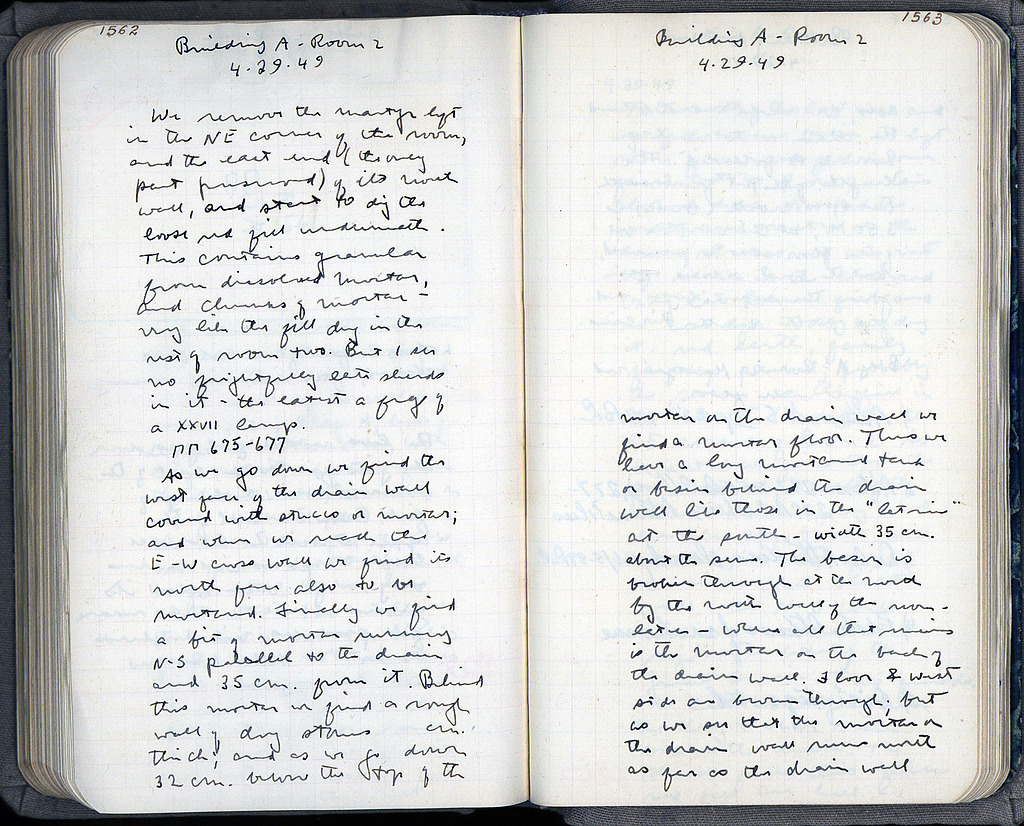 1562
Building A - Room 2
4.29.49
We remove the left
in the NE corner of the room,
and the east end (the only
part preserved) of its north
wall, and start to dig the
loose red fill underneath.
This contains granular
from dissolved mortar,
and chunks of mortar -
very like the fill dug in the
rest of room two. But I see
no frightfully late sherds
in it - the latest a frag of
a XXVII lamp.
ΠΠ 675-677
As we go down we find the
west face of the drain wall
covered with stucco or mortar;
and when we reach the
E-W cross wall we find its
north face also to be
mortared. Finally we find
a bit of mortar running
N-S parallel to the drain
and 35 cm. from it. Behind
this mortar we find a rough
wall of dry stones cm.
thick; and as we go down
32 cm. below the top of the
1563
Building A - Room 2
4.29.49
mortar on the drain wall we
find a mortar floor. Thus we
have a long mortared tank
or basin behind the drain
well like those in the "latrine"
at the south - width 35 cm.
about the same. The basin is
broken through at the north
by the north wall of the non-
latrine - where all that remains
is the mortar on the back of
the drain wall. Floor & west
side are broken through, but
as we see that the mortar on
the drain wall runs north
as far as the drain wall